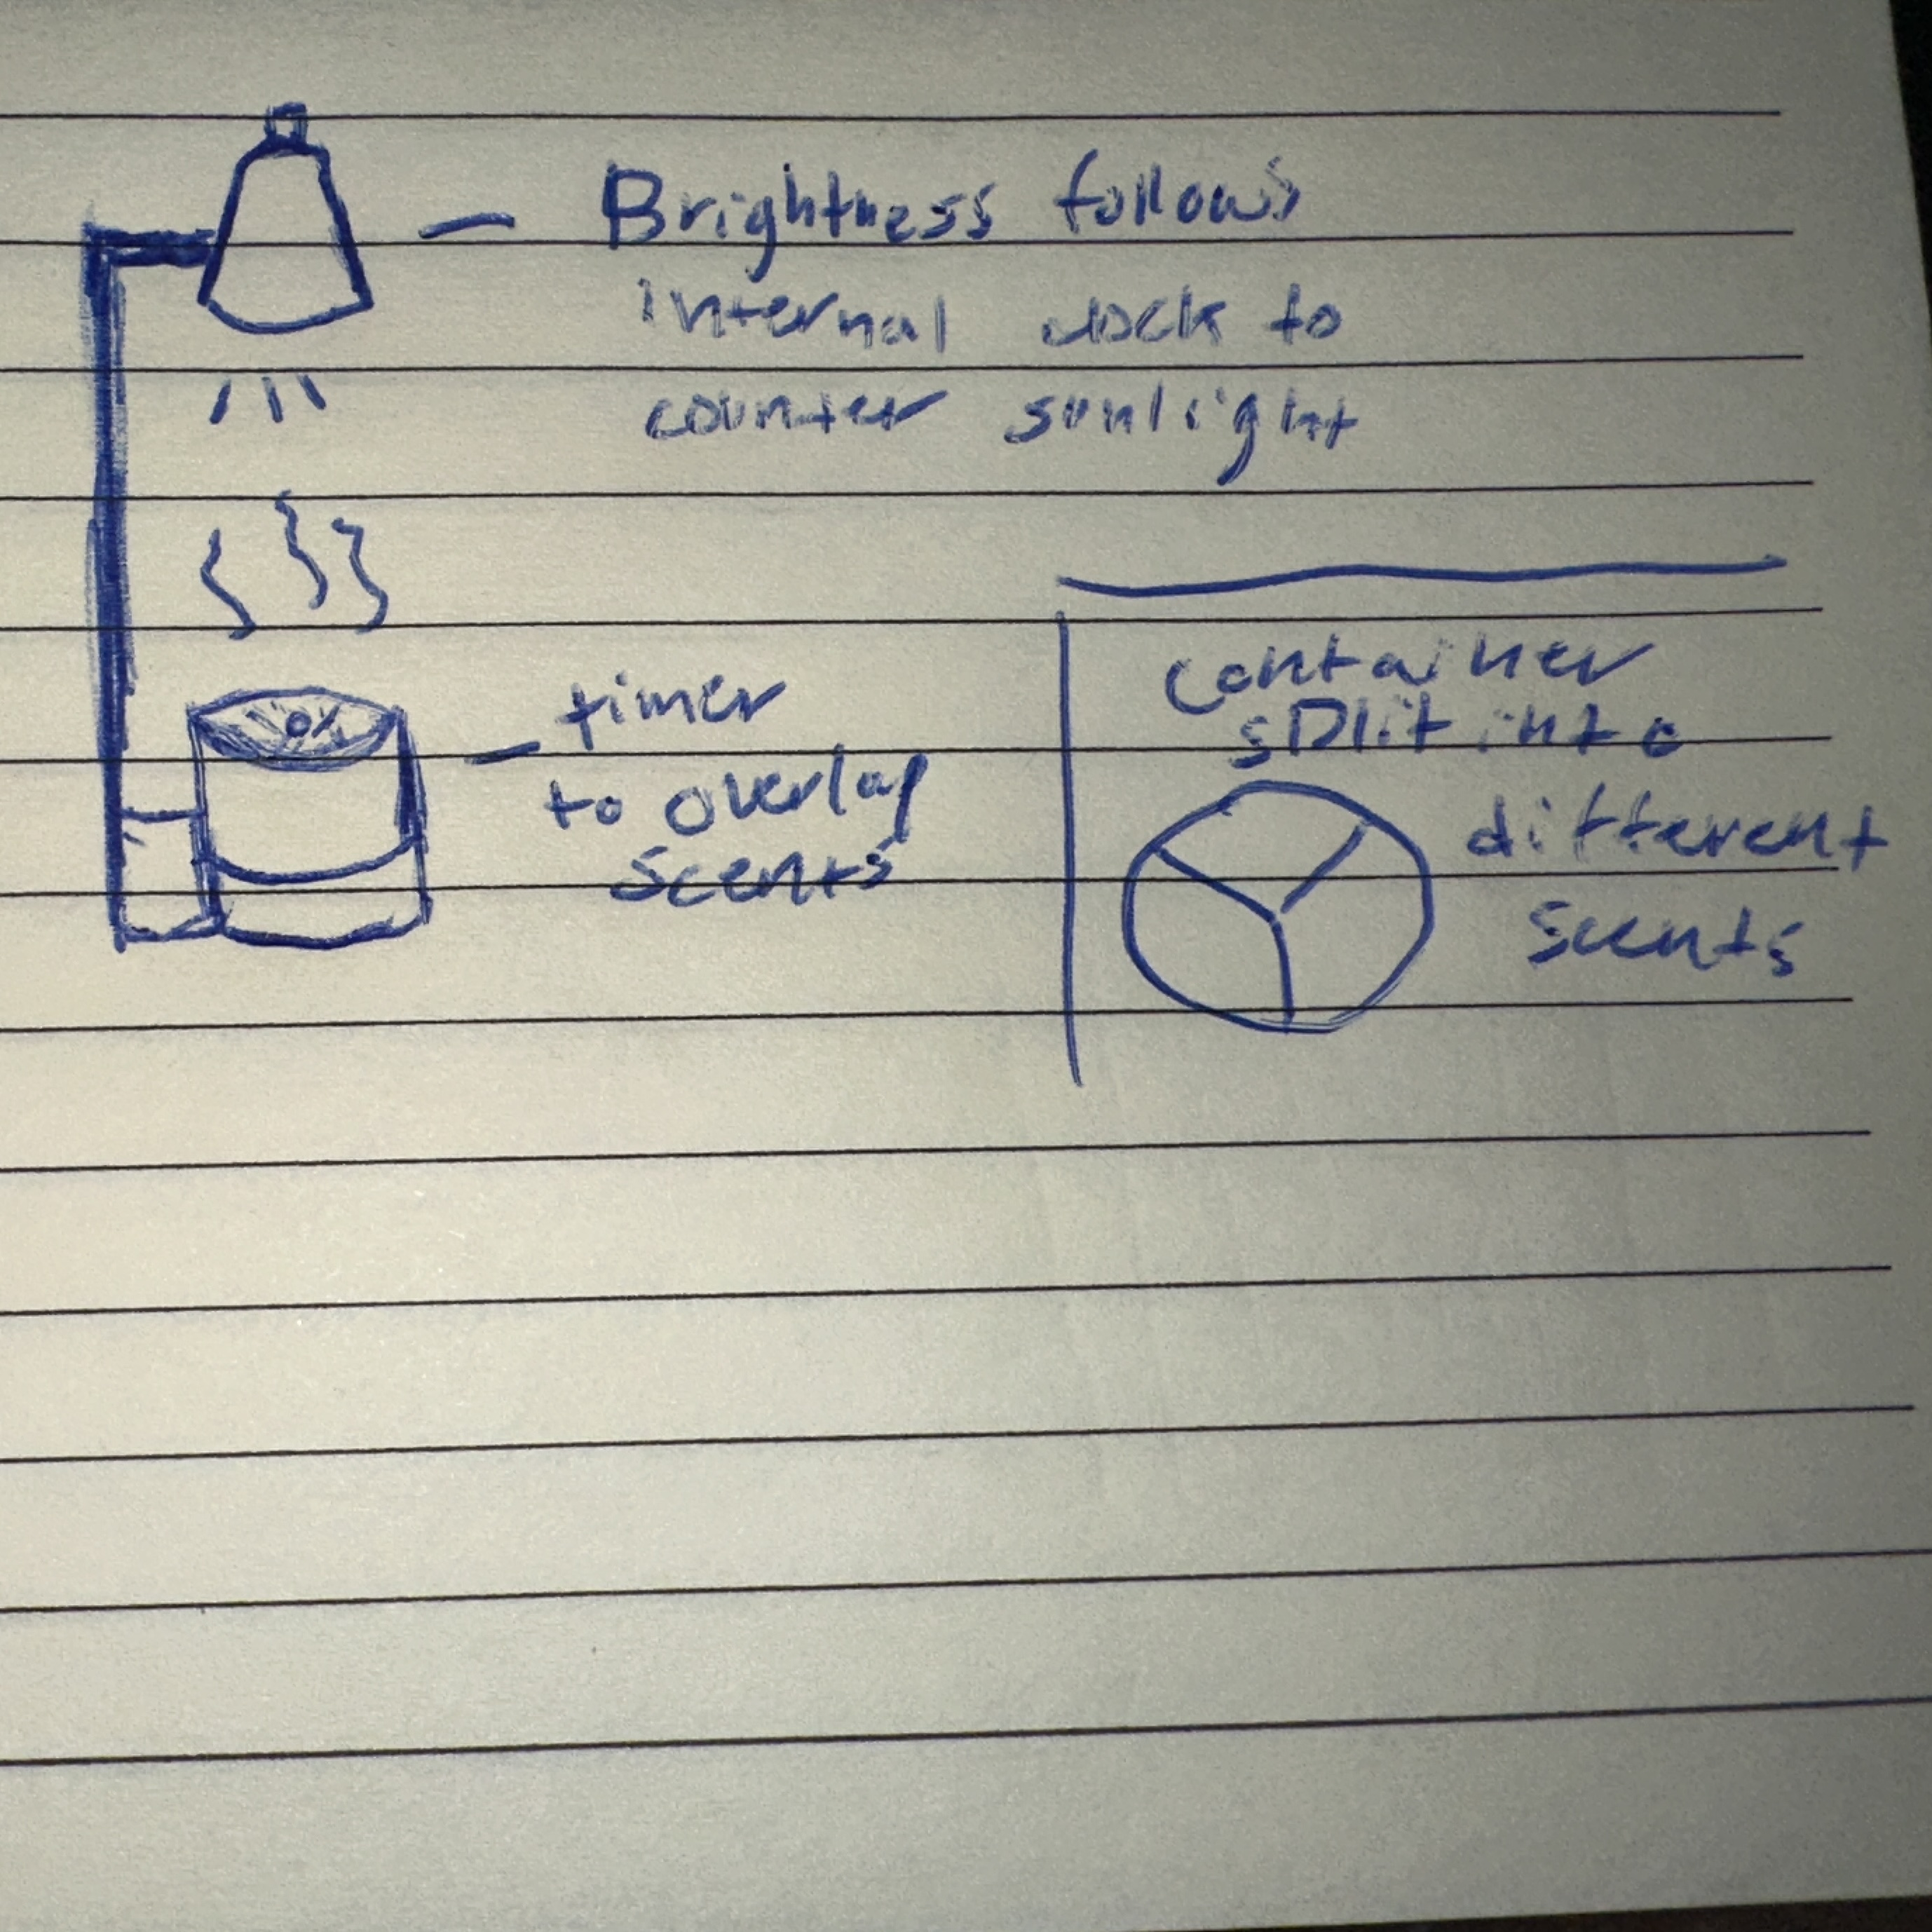 Brightness follows
internal clock to
counter sunlight
timer
to overlap
scents
container
split into
different
scents